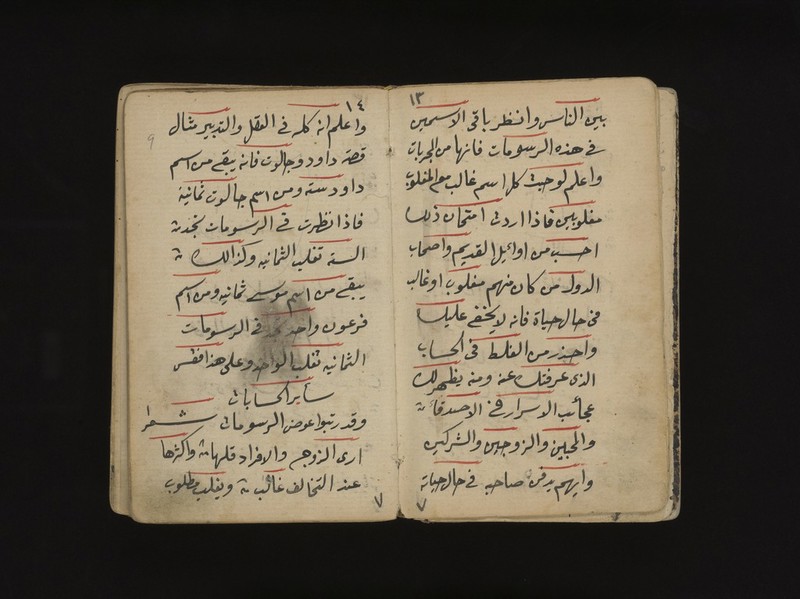 ١٣
بين الناس وانظر باقي الاسمين
في هذه الرسومات فانها من المجربات
واعلم لوحيت كل اسم غالب مع المغلوب
مغلوبين فاذا اردت امتحان ذلك
احسب من اوائيل القديم واصحاب
الدول من كان منهم مغلوب او غالب
في حال حياة فانه لا يخفي عليك
واحذر من الغلط في الحساب
الذي عرفتك عنه ومنه يظهر لك
عجائب الاسرار في الاصدقاء
والمحبين والزوجين والشركين
وايهم يدفن صاحبه في حال حياته
٧
١٤
واعلم انه كله في العقل والتدبير مثال
قصة داود وجالوت فانه يبقي من اسم
داود ستة ومن اسم جالوت ثمانية
فاذا نظرت في الرسومات تجدته
الستة تغلب الثمانيه وكذالك
يبقي من اسم موسي ثمانيه ومن اسم
فرعون واحد في الرسومات
الثمانيه تغلب الواحد وعلي هذا فقس
سائر الحسابات
وقد رتبوا عوض الرسومات شعرا
اري الزوج والافراد قلها واكثرها
عند التخالف غالب ويغلب مطلوب
٧
9